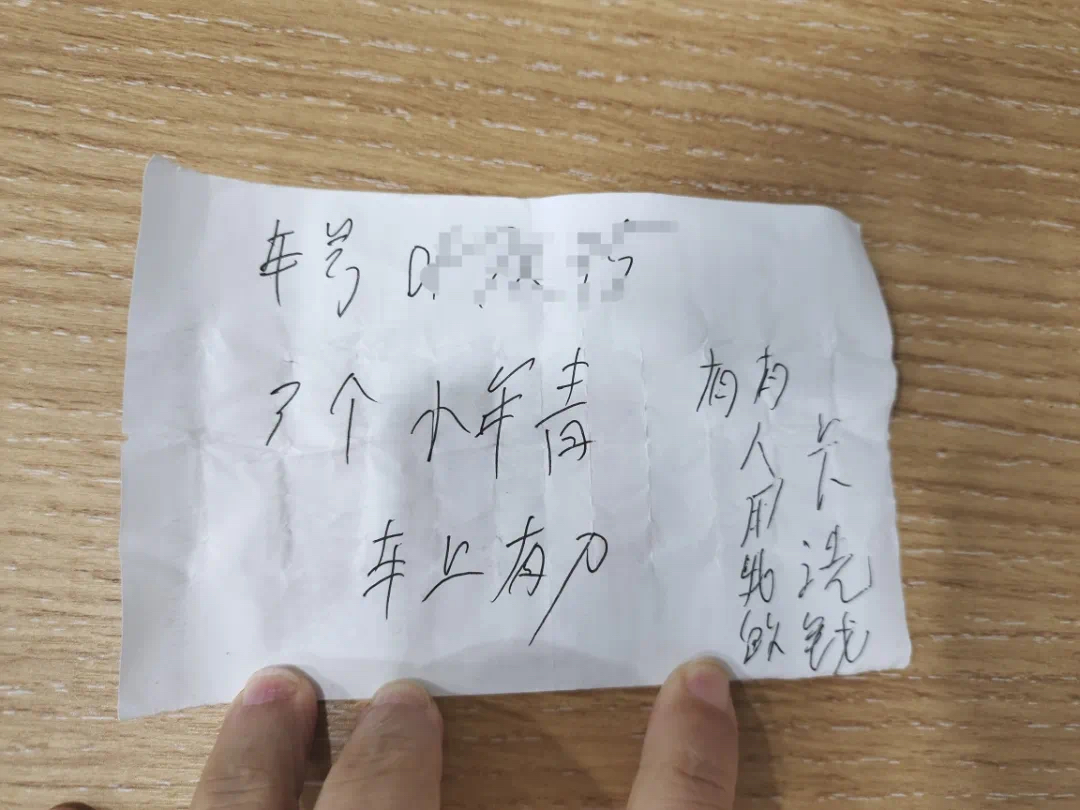 车号
3个小年青
车上有刀
有
有人用我的
卡洗钱